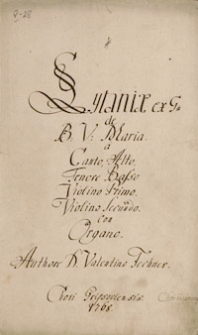 Lytaniæ ex G♮
de
B. V. Maria.
a
Canto, Alto,
Tenore Basso
Violino Primo.
Violino Secundo.
con
Organo.
Authore D. Valentino Techner.
Chori Grissoviensis
1768.